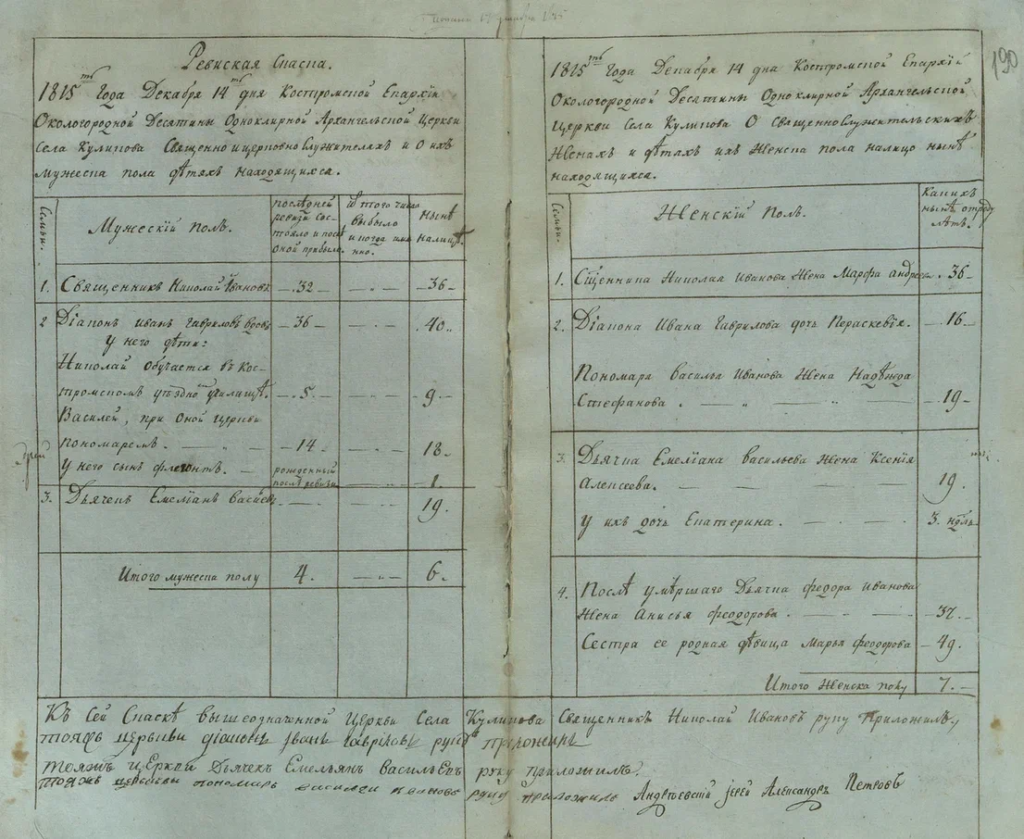 190
Ревиская Сказка.
1815 года Декабря 14 дня Костромской Епархіи
Окологородной Десятины Одноклирной Архангельской Церкви
села Куликова Священно и церковно служителяхъ и о ихъ
мужеска пола дѣтяхъ находящихся.
Семьи.
Мужескій полъ.
послѣдней ревизіи состояло и послѣ оной прибыло
в того число выбыло и когда имянно.
нынѣ налицо.
1. Священникъ Николай Ивановъ — 32 — — 36 —
2 Діаконъ иванъ Гавриловъ — 36 — — 40
У него дѣти:
Николай обучается въ Кос-
тромскомъ уѣздно училищѣ. — 5 — 9
Василей, при оной церкви
пономаремъ. — 14 — 18
У него сынъ флегонтъ. — рожденный послѣ ревизіи — 1
3. Дьячекъ Емеліанъ василіевъ — 19.
Итого мужеска полу 4. — 6.
1815 года Декабря 14 дня Костромской Епархіи
Окологородной Десятины Одноклирной Архангельской
Церкви села Куликова О священнослужительскихъ
Женахъ и дѣтяхъ ихъ Женска пола налицо нынѣ
находящихся.
Семьи.
Женскій полъ.
Какихъ нынѣ отроду лѣтъ.
1. Сщенника Николая иванова жена Марфа андреева — 36 —
2. Діакона Ивана Гаврилова дочь Пераскевія. — 16 —
Пономаря василья Иванова жена Надѣжда
Стефанова. — 19 —
3. Дьячка Емеліана васильева жена Ксенія
Алексѣева. — 19.
у ихъ дочь Екатерина. — 3. нѣдѣль
4. Послѣ умѣршаго Дьячка федора иванова
Жена Анисья феодорова. — 37. —
Сестра ее родная дѣвица Марья феодорова — 49.
Итого Женска полу 7. —
Къ сей сказкѣ вышеозначенной Церкви села Куликова Священникъ Николай Ивановъ руку приложилъ,
тояжъ церькви діаконъ Іванъ Гавріловъ руку приложилъ
тояжъ церкви Дьячекъ Емельянъ васильевъ руку приложилъ.
тояжъ церькви пономарь василеи ивановъ руку приложилъ Андреевскій іерей Александръ Петровъ